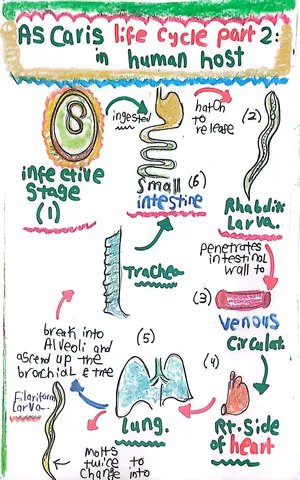 AS Caris life Cycle part 2:
in human host
ingested
hatch
to
release
(2)
infective
Stage
(1)
Small (6)
intestine
Rhabditi
Larva.
Trachea
penetrates
intestinal
wall to
(3)
Venous
Circulat
break into
Alveoli and
ascend up the
bronchial & tree
(5)
(4)
Filariform
Larva.
Lung.
Rt. Side
of heart
Molts
twice to
Change into